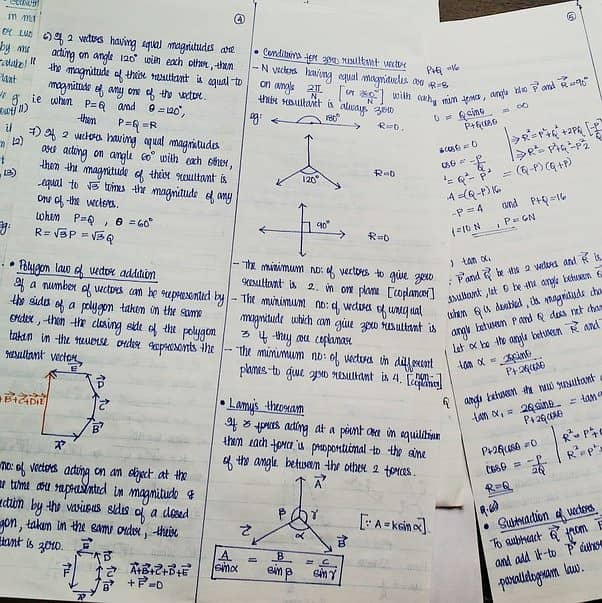 ④
6) If 2 vectors having equal magnitudes are
acting on angle 120° with each other, then
the magnitude of their resultant is equal to
magnitude of any one of the vector.
i.e when P=Q and θ=120°,
then P=Q=R
7) If 2 vectors having equal magnitudes
are acting on angle 60° with each other,
then the magnitude of their resultant is
equal to √3 times the magnitude of any
one of the vectors.
when P=Q , θ = 60°
R= √3P = √3Q
• Polygon law of vector addition
If a number of vectors can be represented by
the sides of a polygon taken in the same
order, then the closing side of the polygon
taken in the reverse order represents the
resultant vector.
E
D
C
B
A
+B+C+D+E
no: of vectors acting on an object at the
time are represented in magnitude &
by the various sides of a closed
taken in the same order, their
is zero.
E
D
C
B
A
F
A+B+C+D+E
+F=0
• Conditions for zero resultant vector
- N vectors having equal magnitudes are
on angle 2π/N [or 360°/N] with each
their resultant is always zero
eg:
180°
R=0.
120°
R=0
90°
R=0
- The minimum no: of vectors to give zero
resultant is 2. in one plane [coplanar]
- The minimum no: of vectors of unequal
magnitude which can give zero resultant is
3 if they are coplanar
- The minimum no: of vectors in different
planes to give zero resultant is 4. [non-coplanar]
• Lamy's theoram
If 3 forces acting at a point are in equilibrium
then each force is proportional to the sine
of the angle between the other 2 forces.
A
β γ
α
C B
[∵ A = k sin α]
A/sin α = B/sin β = C/sin γ
⑤
P+Q =16
R=8
min force, angle b/w P and R =90°
= Q sinθ / P+Q cosθ = ∞
R²= P²+Q²+2PQ
R²= P²+Q²-P²2
= Q²-P² = (Q-P)(Q+P)
=(Q-P)16
-P = 4 and P+Q =16
=10 N , P = 6N
tan α₁
P and Q be the 2 vectors and R is
resultant, let θ be the angle between
when Q is doubled, its magnitude
angle between P and Q does not
Let α be the angle between R and
tan α = 2Q sinθ / P+2Q cosθ
angle between the new resultant
tan α₁ = 2Q sinθ / P+2Q cosθ = tan
P+2Q cosθ =0
cosθ = -P/2Q
R² = P²+
R² = P²
R=Q
• Subtraction of vectors
To subtract Q from P
and add it to P
parallelogram law.